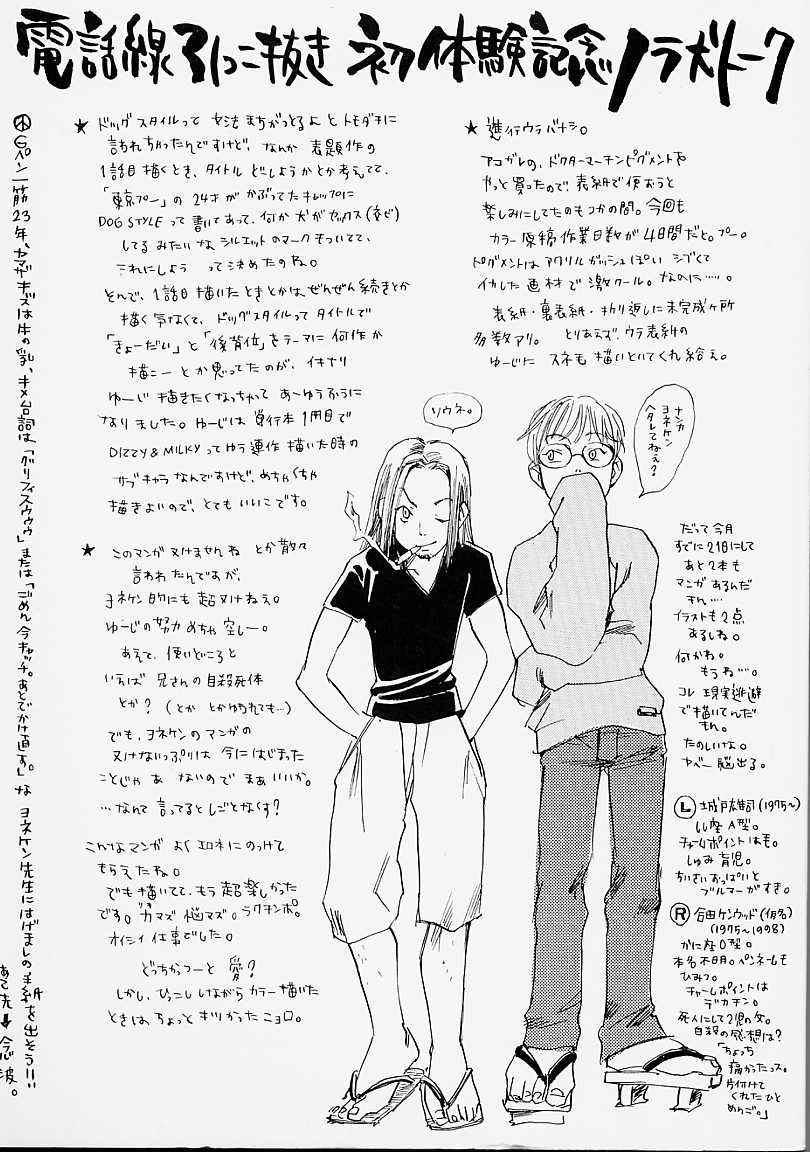 電話線引っこ抜き 初体験記念ノラ犬トーク
★ 進行ウラバナシ。
アコガレの、ドクターマーチンピグメントを
やっと買ったので、表紙で使おうと
楽しみにしてたのもつかの間。今回も
カラー原稿作業日数が4日間だと。プー。
ピグメントはアクリルガッシュぽい シブくて
イカした画材で激クール。なのに……。
表紙・裏表紙・折り返しに未完成ヶ所
多数アリ。とりあえず、ウラ表紙の
ゆーじに スネ毛 描いといてくれ給え。
★ ドッグスタイルって 文法 まちがっとるよ と トモダチに
言われちゃったんですけど、なんか 表題作の
1話目描くとき、タイトル どしようか とか考えてて、
「東京プー」の 24才が かぶってた キャップに
DOG STYLE って 書いてあって、何か 犬が セックス
してる みたいな シルエットの マークもついてて、
これにしよう って決めたのね。
とんで、1話目 描いたときとかは、ぜんぜん続きとか
描く気なくて、ドッグスタイルって タイトルで
「きょーだい」と「後背位」をテーマに 何作か
描こー とか思ってたのが、イキナリ
ゆーじ 描きたくなっちゃって あーゆうふうに
なりました。ゆーじは 単行本 1冊目で
DIZZY & MILKY ってゆう連作 描いた時の
サブキャラ なんですけど、めちゃくちゃ
描きよいので、とても いいこです。
★ このマンガ ヌけませんね とか散々
言われたんですが、
ヨネケン的にも 超ヌけねえ。
ゆーじの努力 めちゃ 空しー。
あえて、使いどころと
いえば 兄さんの自殺死体
とか？（とか とかゆられても…）
でも、ヨネケンのマンガの
ヌけないっぷりは 今にはじまった
ことじゃあ ないので まあいいか。
…なんて 言ってると しごとなくす？
こんなマンガ よく エロネにのっけて
もらえたね。
でも描いてて、もう 超楽しかった
です。ガマズ 悩マズ。ラクチンポ。
オイシイ 仕事でした。
どっちかつーと 愛？
しかし、ひっこし しながら カラー描いた
ときは、ちょっと キツかった ニョロ。
ソウネ。
ナンカ
ヨネケン
ヘタレてねえ？
だって今月
すでに21日にして
あと2本も
マンガあるんだ
もん……
イラストも2点
あるしね。
何かね。
もうね…。
コレ 現実逃避
で描いてんだ
もん。
たのしいな。
ヤベー 脳出る。
Ⓛ 城戸雄司（1975〜）
しし座 A型。
チャームポイントは毛。
しゅみ 育児。
ちいさいおっぱいと
ブルマーがすき。
Ⓡ 合田ケンウッド（仮名）
（1975〜1998）
かに座O型。
本名不明。ペンネームも
ひみつ。
チャームポイントは
デカチン。
死人にして2児の父。
自殺の感想は？
「ちょっち
痛かったっス。
片付けて
くれたひと
めんご。」
Gペン一筋23年、ヤマザキズは牛の乳、キメ台詞は、「グリフィスゥゥゥ」または「ごめん今キャッチ。あとでかけ直す。」な ヨネケン先生にはげましの手紙を出そう!!
あて先↓念波。